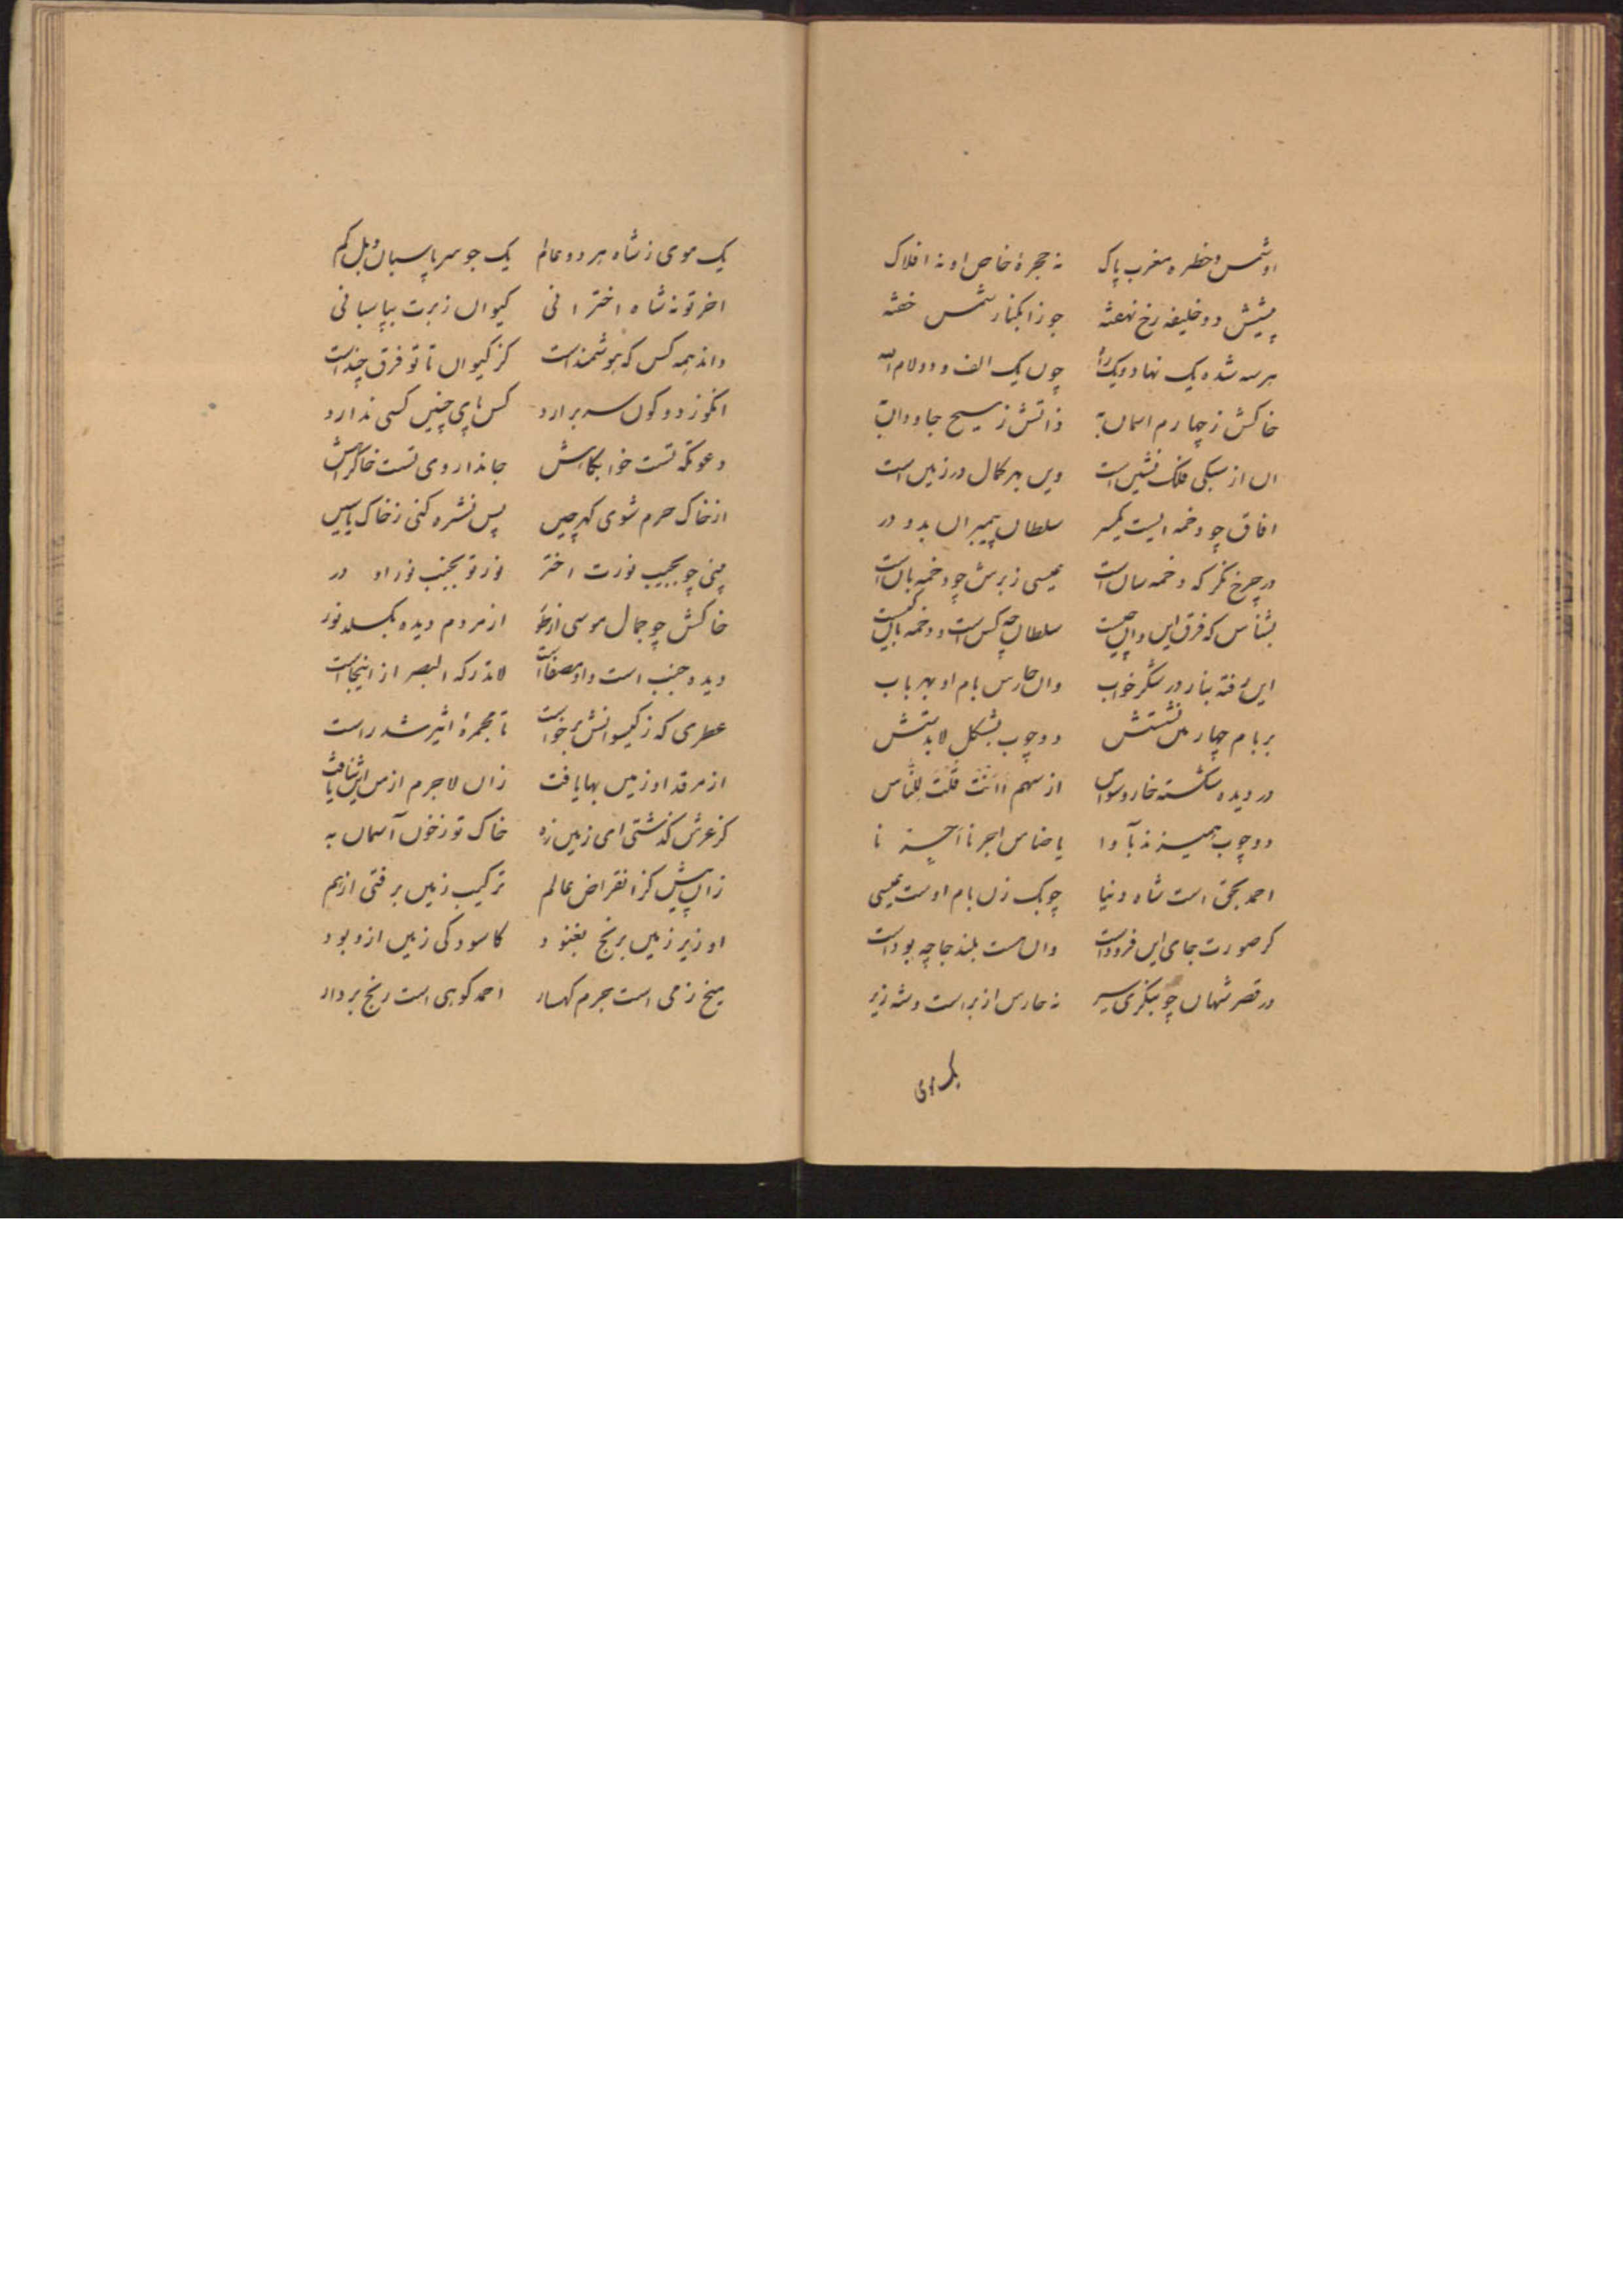 او شمس و خطره مغرب پاک نه حجرهٔ خاص او نه افلاک
پیشش دو خلیفه رخ نهفته جوزا بکنار شمس خفته
هر سه شده یک نهاد و یک راه چون یک الف و دو لام الله
خاکش ز چهارم اسمان به ذاتش ز مسیح جاودان به
ان از سبکی فلک نشین است وین بهر کمال در زمین است
افاق چو دخمه ایست یکسر سلطان پیمبران بدو در
در چرخ نکر که دخمه سان است عیسی ز برش چو دخمه بان است
بشناس که فرق این و ان چیست سلطان چه کس است و دخمه بان کیست
این خفته بناز در شکر خواب وان حارس بام او بهر باب
بر بام چهارمین نشستش دو چوب بشکل لا بدستش
در دیده شکسته خار وسواس از سهم أانت قلت للناس
دو چوب همیزند باوا یا خناس اجرنا اخسنا
احمد بحق است شاه دنیا چوبک زن بام اوست عیسی
کر صورت جای این فرود است وان هست بلند جا چه بود است
در قصر شهان چو بنکری سیر نه حارس از بر است و شه زیر
یک موی
یک موی ز شاه هر دو عالم یک جو سر پاسبان و بل کم
اخر تو نه شاه اخترانی کیوان زبرت بپاسبانی
داند همه کس که هوشمند است کز کیوان تا تو فرق چند است
انکو ز دو کون سر برارد کس پای چنین کسی ندارد
دعوتکه تست خوابکاهش جاندا روی تست خاک راهش
از خاک حرم شوی کهر چین پس نشره کنی ز خاک یاسین
بینی چو بجیب نورت اختر نور تو بجنب نور او در
خاکش چو جمال موسی از طور از مردم دیده بکسلد نور
دیده جنب است و او مصفاست لا تدرکه البصر از اینجاست
عطری که ز کیسوانش برخواست تا مجمرهٔ اثیر شد راست
از مرقد او زمین بها یافت زان لاجرم از مس این شفا یافت
کز عرش کذشتی ای زمین زه خاک تو ز خون آسمان به
زان پیش کز انقراض عالم ترکیب زمین برفتی از هم
او زیر زمین برنج بغنود کاسودکی زمین ازو بود
میخ زمی است جرم کهسار احمد کوهی است رنج بردار